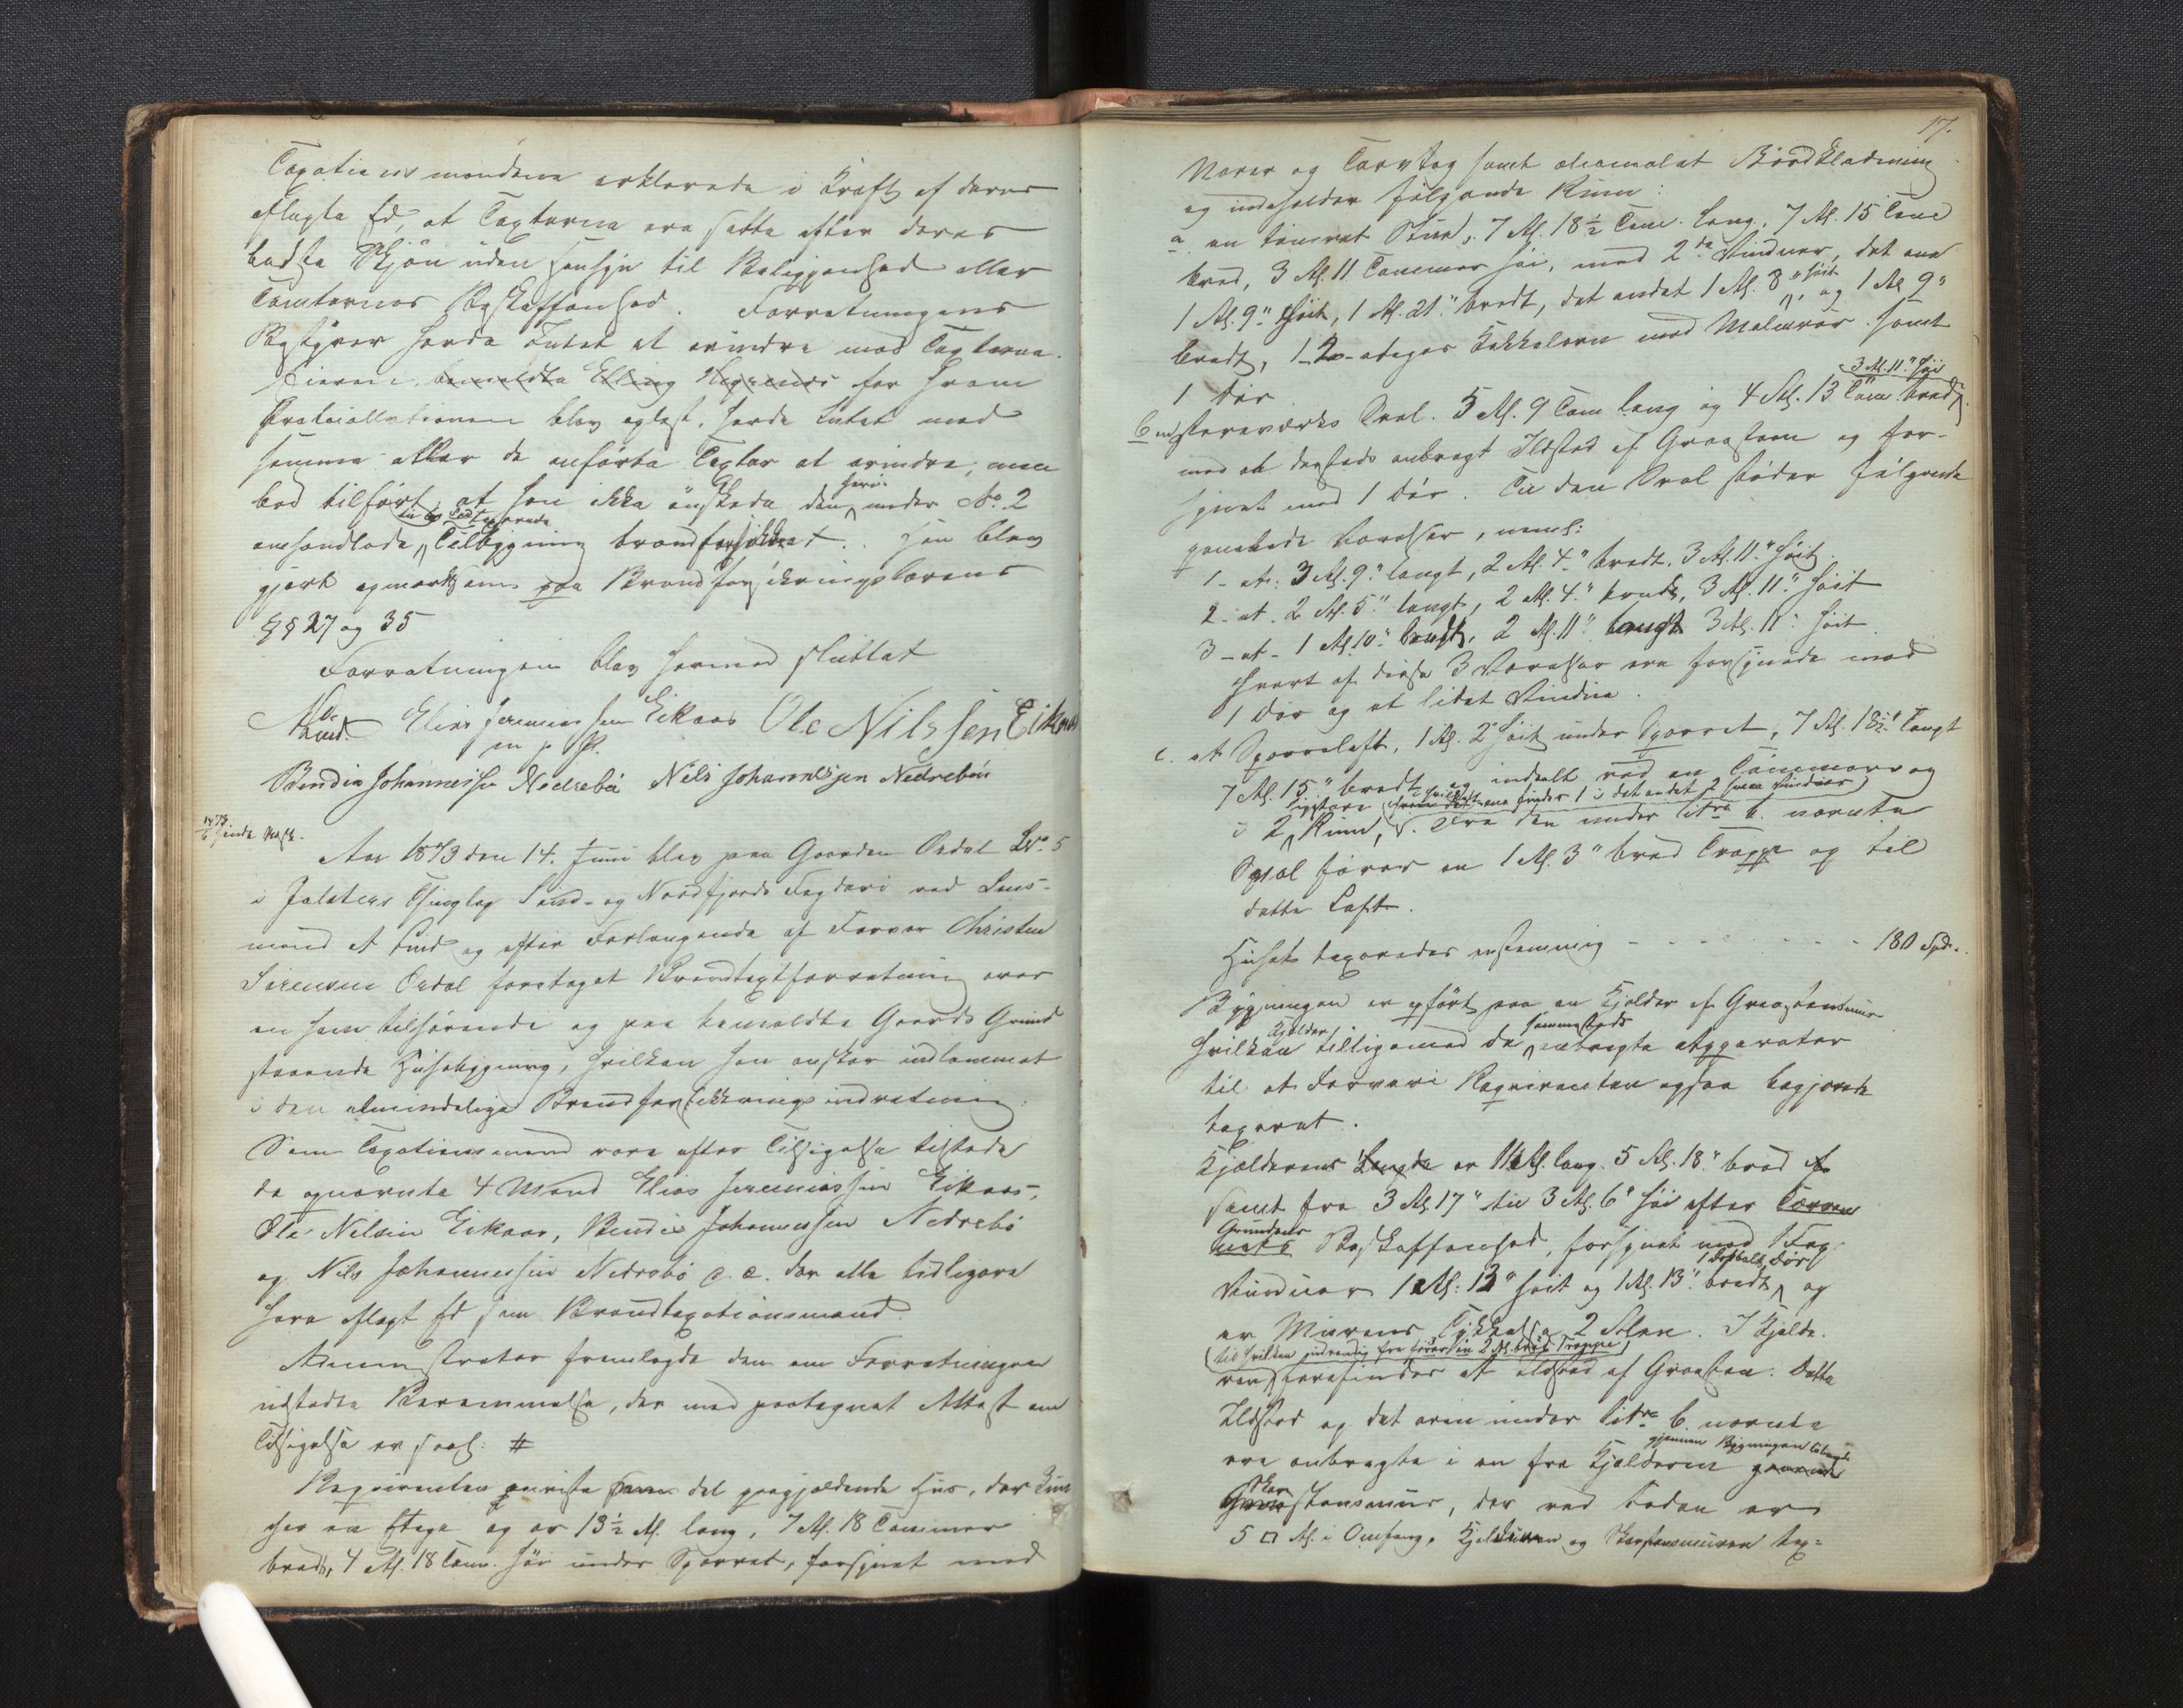 Taxationsmændene erklærede i Kraft af deres
aflagte Ed, at Taxterne ere satte efter deres
bedste Skjøn uden Hensyn til Beliggenhed eller
Tomternes Beskaffenhed. Forretningens
Bestyrer havde Intet at erindre mod Taxterne.
Eieren, bemeldte Elling for hvem
Protocollationen blev oplæst, havde Intet mod
samme eller de anførte Taxter at erindre, men
bad tilført, at han ikke ønskede den heri under No. 2
omhandlede, til 60 Spd taxerede Tilbygning brandforsikret. Han blev
gjort opmærksom paa Brandforsikringslovens
§§ 27 og 35
Forretningen blev hermed sluttet
A Lind. Elias Jeremiassen Eikaas Ole Nilssen Eikaas
m p P.
Bendix Johannessen Nedrebø Nils Johannessen Nedrebøe
Aar 1873 den 14. Juni blev paa Gaarden Ørdal Lno. 5
i Jølsters Thinglag Sønd- og Nordfjords Fogderi ved Lens-
mand A Lind og efter Forlangende af Farver Christen
Sørensen Ørdal foretaget Brandtaxtforretning over
en ham tilhørende og paa bemeldte Gaards Grund
staaende Husebygning, hvilken han ønsker indlemmet
i den almindelige Brandforsikkringsindretning.
Som Taxationsmænd vare efter Tilsigelse tilstede
de opnævnte 4 Mænd Elias Jeremiassen Eikaas,
Ole Nilsen Eikaas, Bendix Johannessen Nedrebø
og Nils Johannessen Nedrebø der alle tidligere
have aflagt Ed som Brandtaxationsmænd.
Administrator fremlagde den om Forretningen
udstedte Berammelse, der med paategnet Attest om
Tilsigelse er saal: #
Requirenten paaviste det paagjældende Hus, der kun
har en Etage og er 13½ Al. lang, 7 Al. 18 Tommer
bred, 4 Al. 18 Tom. høi under Sparret, forsynet med
17.
Næver og Torvtag samt oliemalet Bordklædning
og indeholder følgende Rum:
a en tømret Stue, 7 Al. 18½ Tom. lang, 7 Al. 15 Tom
bred, 3 Al. 11 Tommer høi, med 2de Vinduer, det ene
1 Al. 9" høit, 1 Al. 21" bredt, det andet 1 Al. 3" høit, og 1 Al 9"
bredt, 1 2-etages Kakkelovn med Malmrør samt
1 Dør
b en stavværks Sval. 5 Al. 9 Tom lang og 4 Al. 13 Tom bred, 3 Al. 11" høi
med et dersteds anbragt Ildsted af Graasteen og for-
synet med 1 Dør. Til den Sval støder følgende
panelede Værelser, neml:
1- et: 3 Al. 9" langt, 2 Al. 4" bredt, 3 Al. 11" høit
2- et 2 Al. 5" langt, 2 Al. 4" bredt, 3 Al. 11" høit
3- et- 1 Al. 10" bredt, 2 Al. 11" langt 3 Al. 11" høit
Hvert af disse 3 Værelser ere forsynede med
1 Dør og et lidet Vindue.
c. et Sparreloft, 1 Al. 2" høit under Sparret, 7 Al. 18½" langt
7 Al. 15" bredt og inddelt ved en Tømmervæg
i 2 Rum, i det andet 2 smaa Vinduer. Fra den under Litra b. nævnte
Sval fører en 1 Al. 3" bred Trappe op til
dette Loft.
Huset taxeredes enstemmig - - - - - - 180 Spd.
Bygningen er opført paa en Kjelder af Graasteensmuur
hvilken Kjelder tilligemed de sammesteds anbragte Apparater
til et Farveri Requirenten ogsaa begjærede
taxeret.
Kjælderens Længde er 11 Al. lang. 5 Al. 18" bred
samt fra 3 Al. 17" til 3 Al. 6" høi efter
Grundens Beskaffenhed, forsynet med 1 Fag
Vinduer 1 Al: 13" høit og 1 Al. 13" bredt, 1 dobbelt Dør og
er Murens Tykkelse 2 Alen. I Kjelde-
(til hvilken indvendig fra fører en 2 Al. bred Trappe)
ren forefindes et Ildsted af Graasten. Dette
Ildsted og det oven under Litra b nævnte
ere anbragte i en fra Kjelderen gjennem Bygningen
Skorstensmuur, der ved Foden er
5 □ Al. i Omfang. Kjelderen og Skorstensmuren tax=